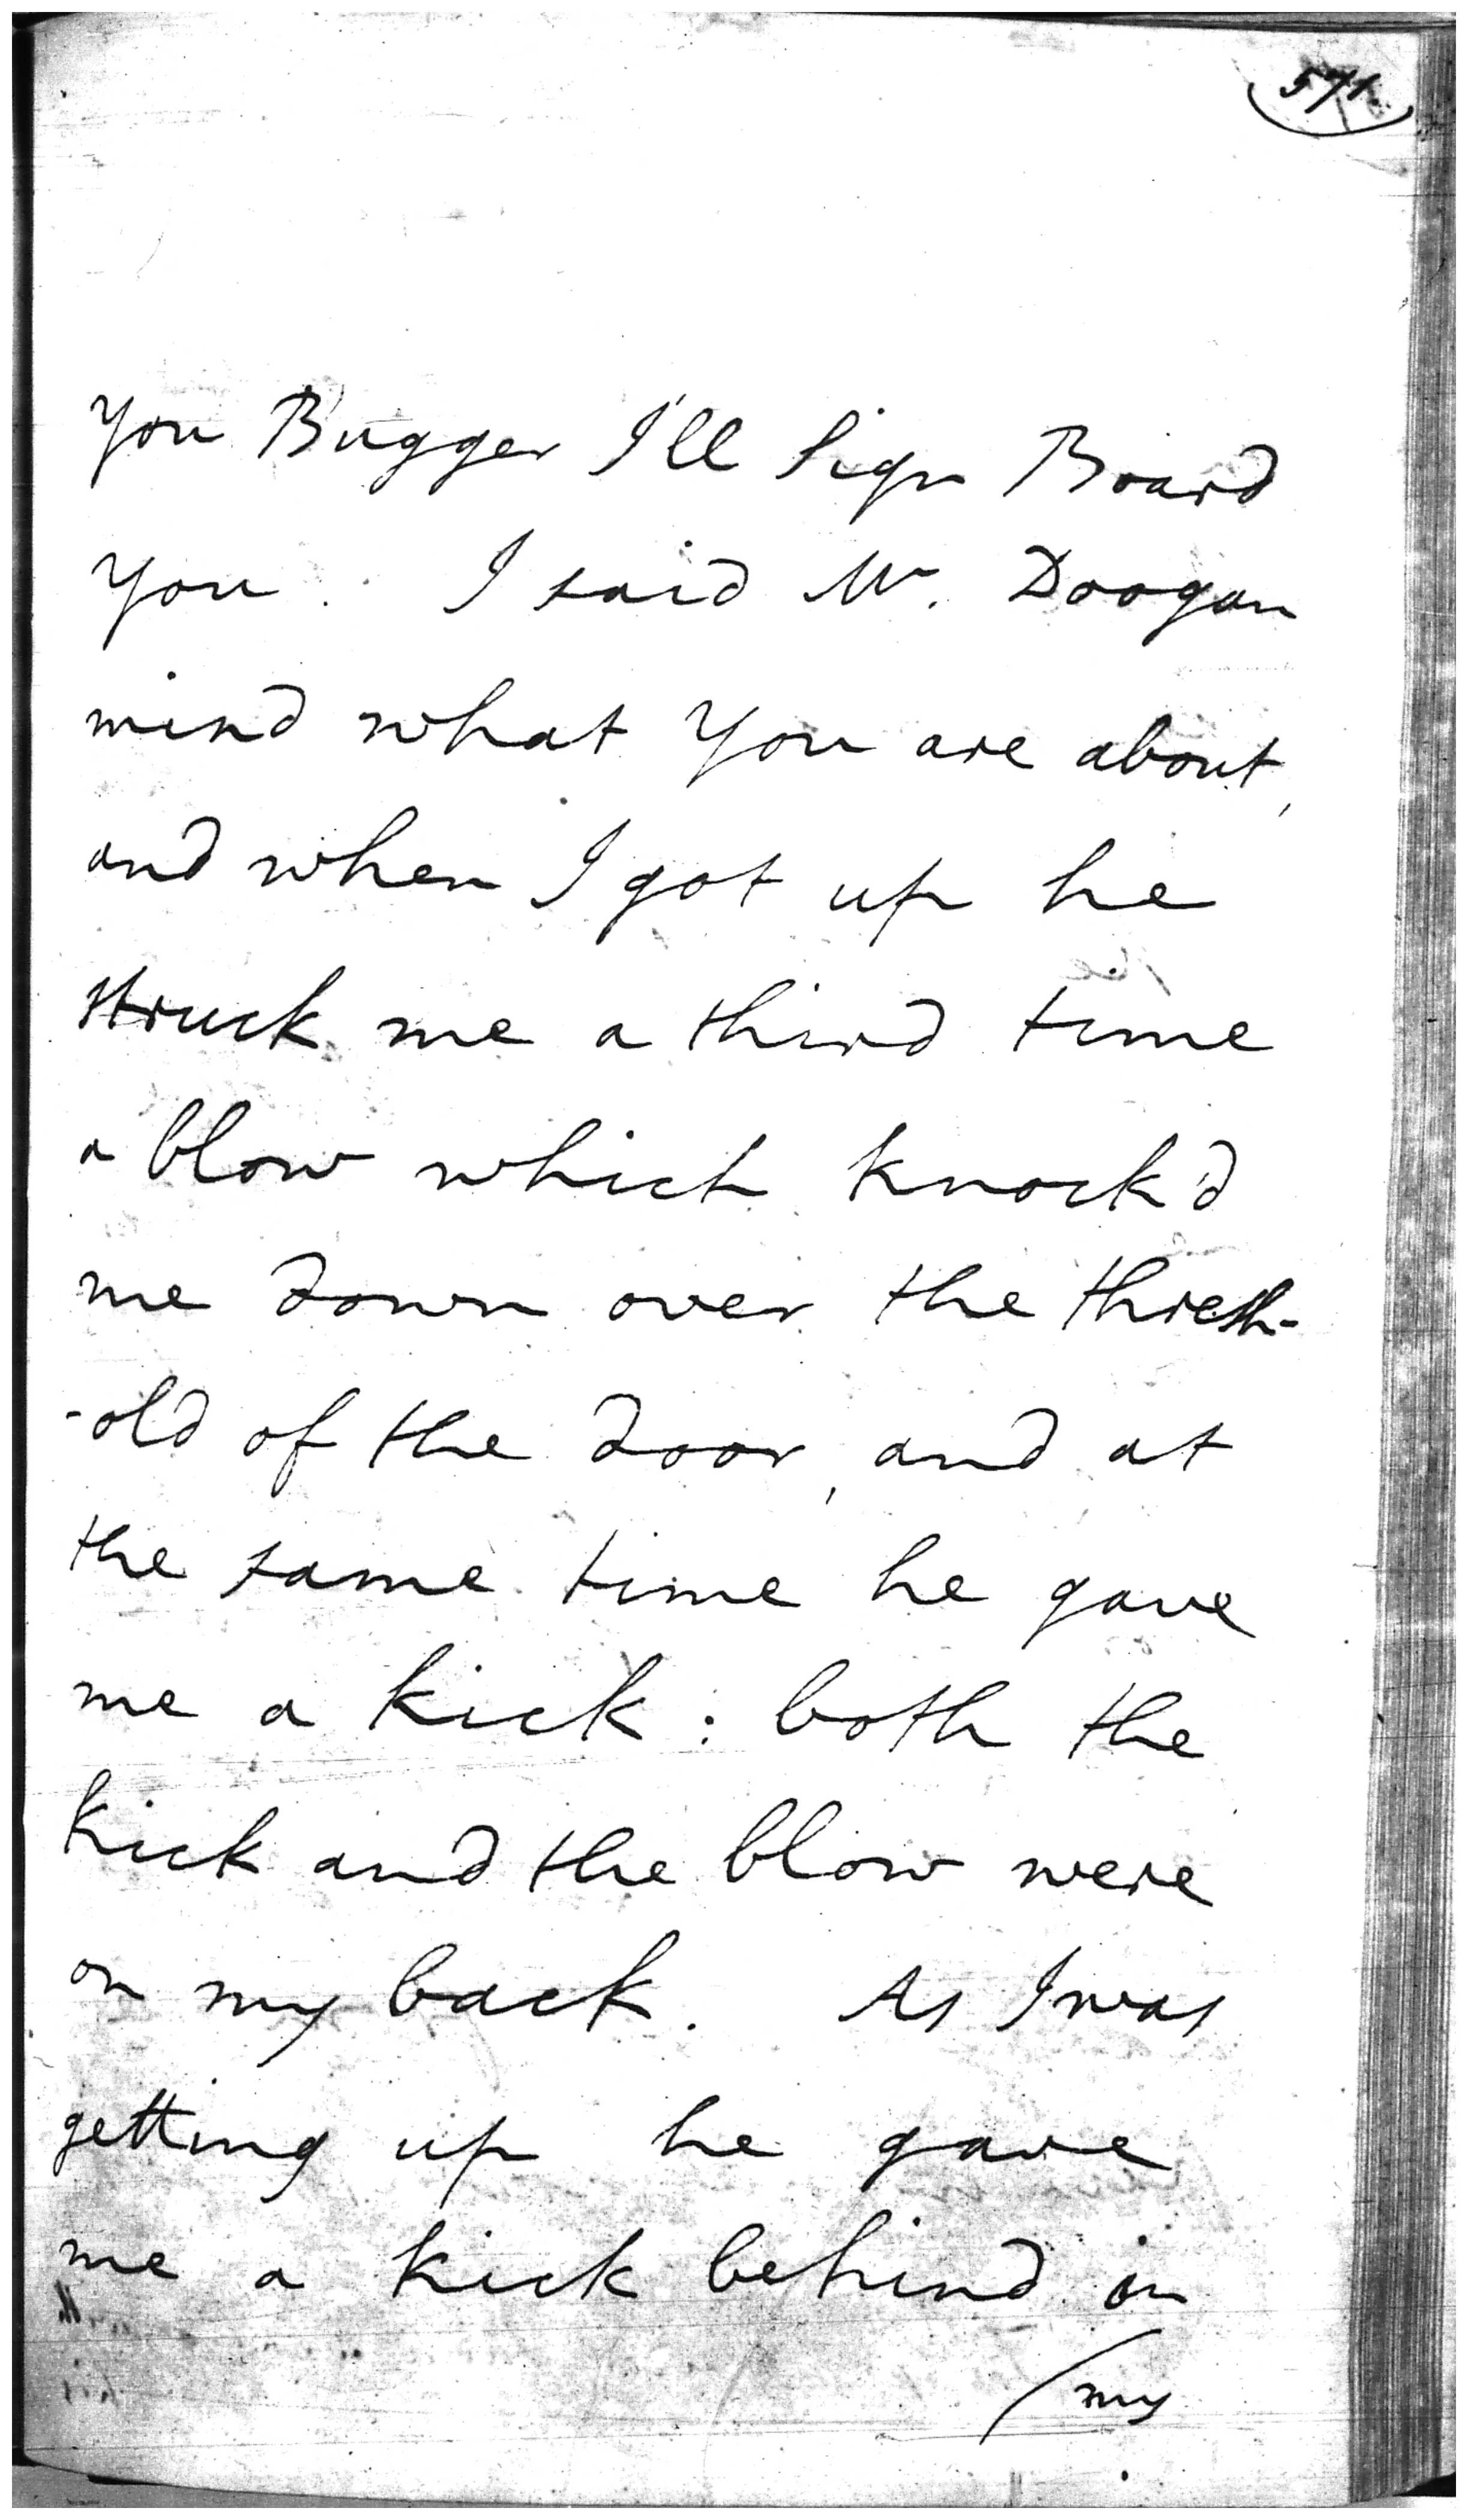 571.
You Bugger I'll Sign Board
You. I said Mr. Doogan
mind what You are about,
and when I got up he
struck me a third time
a blow which knock'd
me down over the thresh-
-old of the door, and at
the same time he gave
me a kick: both the
kick and the blow were
on my back. As I was
getting up he gave
me a kick behind in
/my